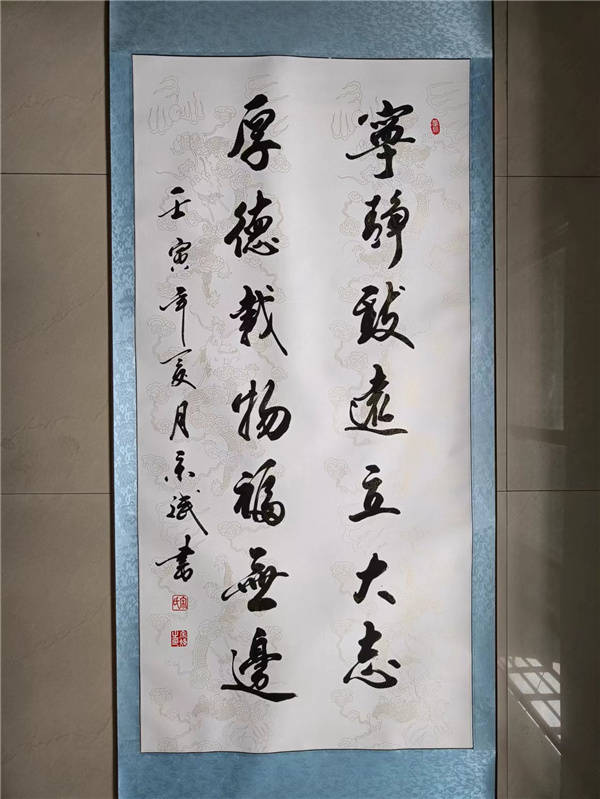 寧靜致遠立大志
厚德載物福無邊
壬寅年亥月景斌书